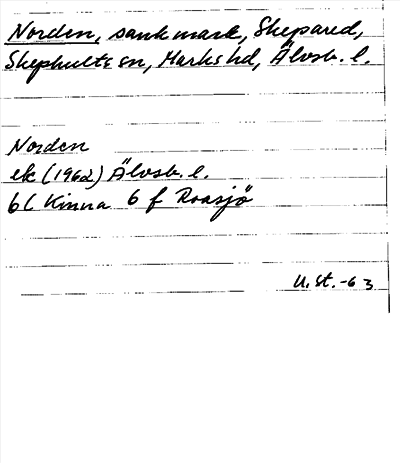 Norden, sank mark, Skepared,
Skephults sn, Marks hd, Älvsb. l.
Norden
ek (1962) Älvsb. l.
6 C Kinna 6 f Roasjö
U. St. -63